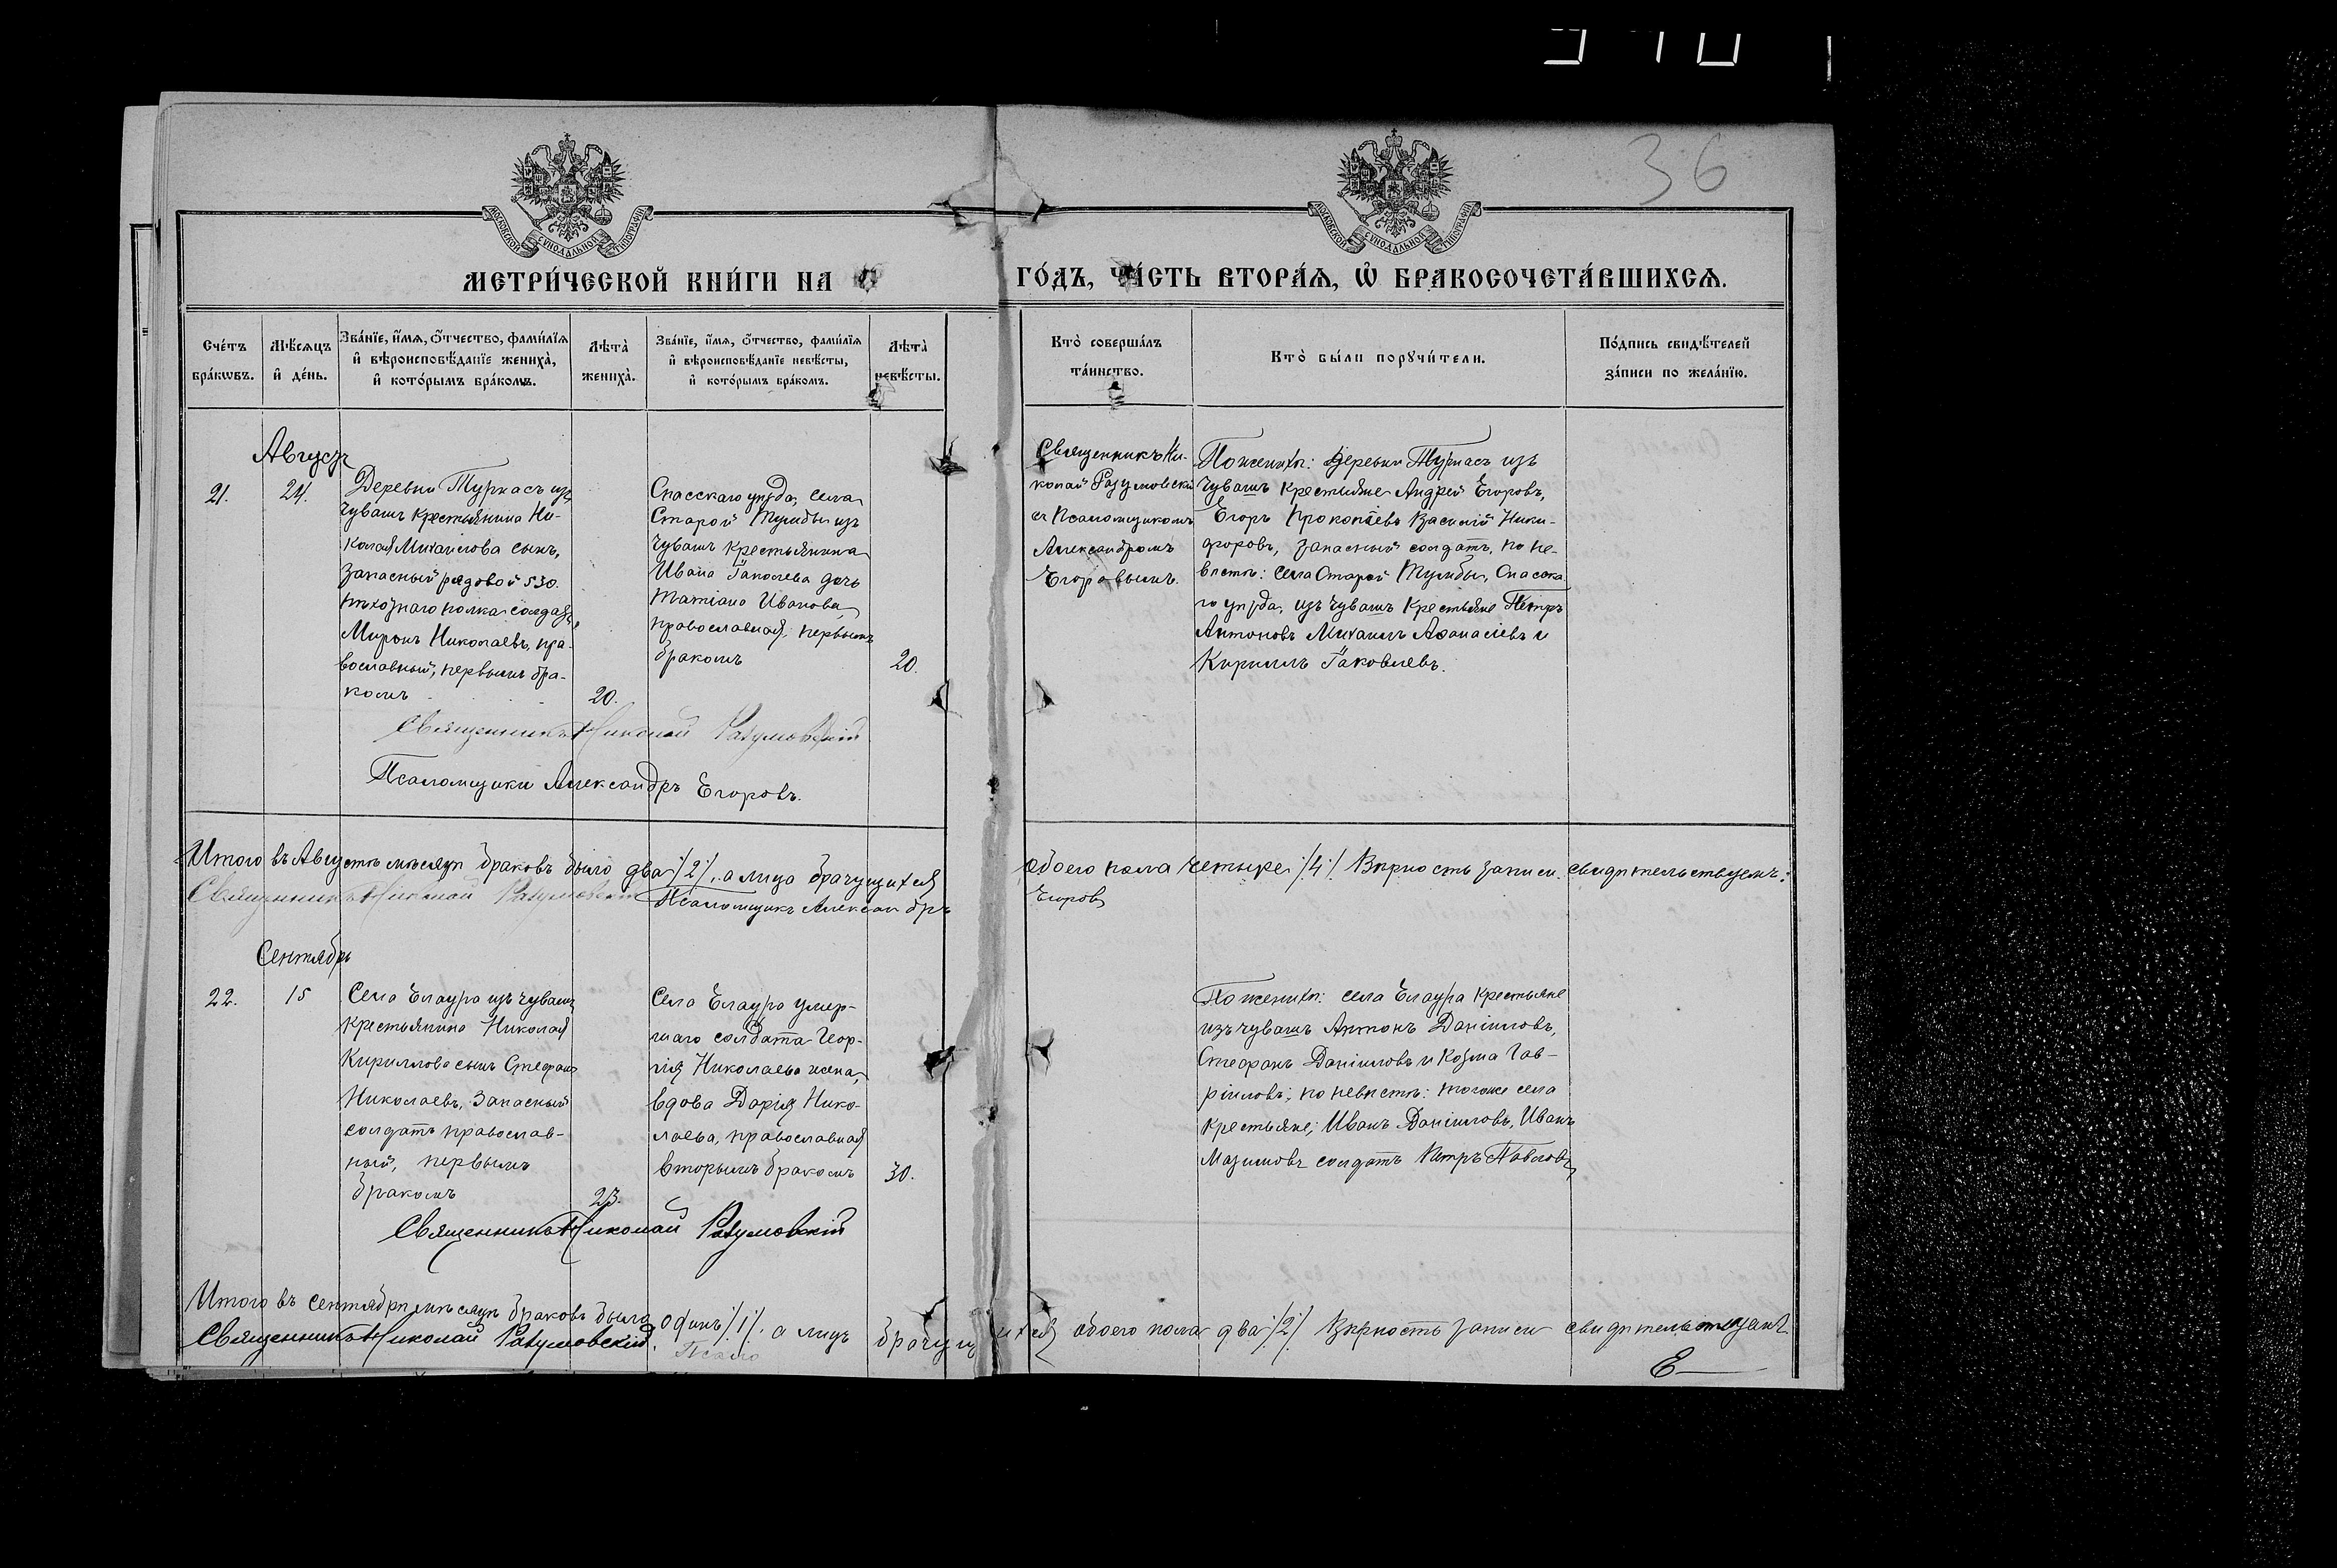 36
МОСКОВСКОЙ СУНОДАЛЬНОЙ ТИПОГРАФІИ
МОСКОВСКОЙ СУНОДАЛЬНОЙ ТИПОГРАФІИ
МЕТРИ́ЧЕСКОЙ КНИ́ГИ НА
ГО́ДЪ, ЧА́СТЬ ВТОРА́Я, Ѡ БРАКОСОЧЕТА́ВШИХСЯ.
Сче́тъ бра́кѡвъ.
Мѣ́сяцъ и де́нь.
Зва́нїе, и́мя, о́тчество, фами́лїя и вѣроисповѣ́данїе жениха̀, и кото́рымъ бра́комъ.
Лѣта̀ жениха̀.
Зва́нїе, и́мя, о́тчество, фами́лїя и вѣроисповѣ́данїе невѣ́сты, и кото́рымъ бра́комъ.
Лѣта̀ невѣ́сты.
Кто̀ соверша́лъ та́инство.
Кто̀ бы́ли порꙋчи́тели.
По́дпись свидѣ́телей за́писи по жела́нїю.
Августъ
21.
24.
Деревни Туркасъ изъ
чувашъ крестьянина Ни-
колая Михаилова сынъ,
запасный рядовой 530.
пѣхотнаго полка солдатъ,
Миронъ Николаевъ, пра-
вославный, первымъ бра-
комъ
20.
Спасскаго уѣзда, села
Старой Тумбы изъ
чувашъ крестьянина
Ивана Іаковлева дочь
Татіана Иванова,
православная, первымъ
бракомъ
20.
Священникъ Ни-
колай Разумовскій
съ Псаломщикомъ
Александромъ
Егоровымъ.
По женихѣ: деревни Туркасъ изъ
чувашъ крестьяне Андрей Егоровъ,
Егоръ Прокопіевъ Василій Ники-
форовъ, запасный солдатъ, по не-
вѣстѣ: села Старой Тумбы, Спасска
го уѣзда, изъ чувашъ крестьяне Петръ
Антоновъ Михаилъ Афанасіевъ и
Кириллъ Іаковлевъ.
Священникъ Николай Разумовскій
Псаломщикъ Александръ Егоровъ.
Итого въ Августѣ мѣсяцѣ браковъ было два /2/, а лицъ брачущихся обоего пола четыре /4/ Вѣрность записи свидѣтельствуемъ:
Священникъ Николай Разумовскій Псаломщикъ Александръ Егоровъ
Сентябрь
22.
15
Села Елаура изъ чувашъ
крестьянина Николая
Кириллова сынъ Стефанъ
Николаевъ, запасный
солдатъ православ-
ный, первымъ
бракомъ
23.
Села Елаура умер-
шаго солдата Геор-
гія Николаева жена,
вдова Дарія Нико-
лаева, православная
вторымъ бракомъ
30.
По женихѣ: села Елаура крестьяне
изъ чувашъ Антонъ Даніиловъ,
Стефанъ Даніиловъ и Козма Гав-
ріиловъ; по невѣстѣ: тогоже села
крестьяне; Иванъ Даніиловъ, Иванъ
солдатъ Петръ Павловъ,
Священникъ Николай Разумовскій
Итого въ сентябрѣ мѣсяцѣ браковъ было одинъ /1/. а лицъ брачущихся обоего пола два /2/ Вѣрность записи свидѣтельствуемъ
Священникъ Николай Разумовскій. Псало
Е